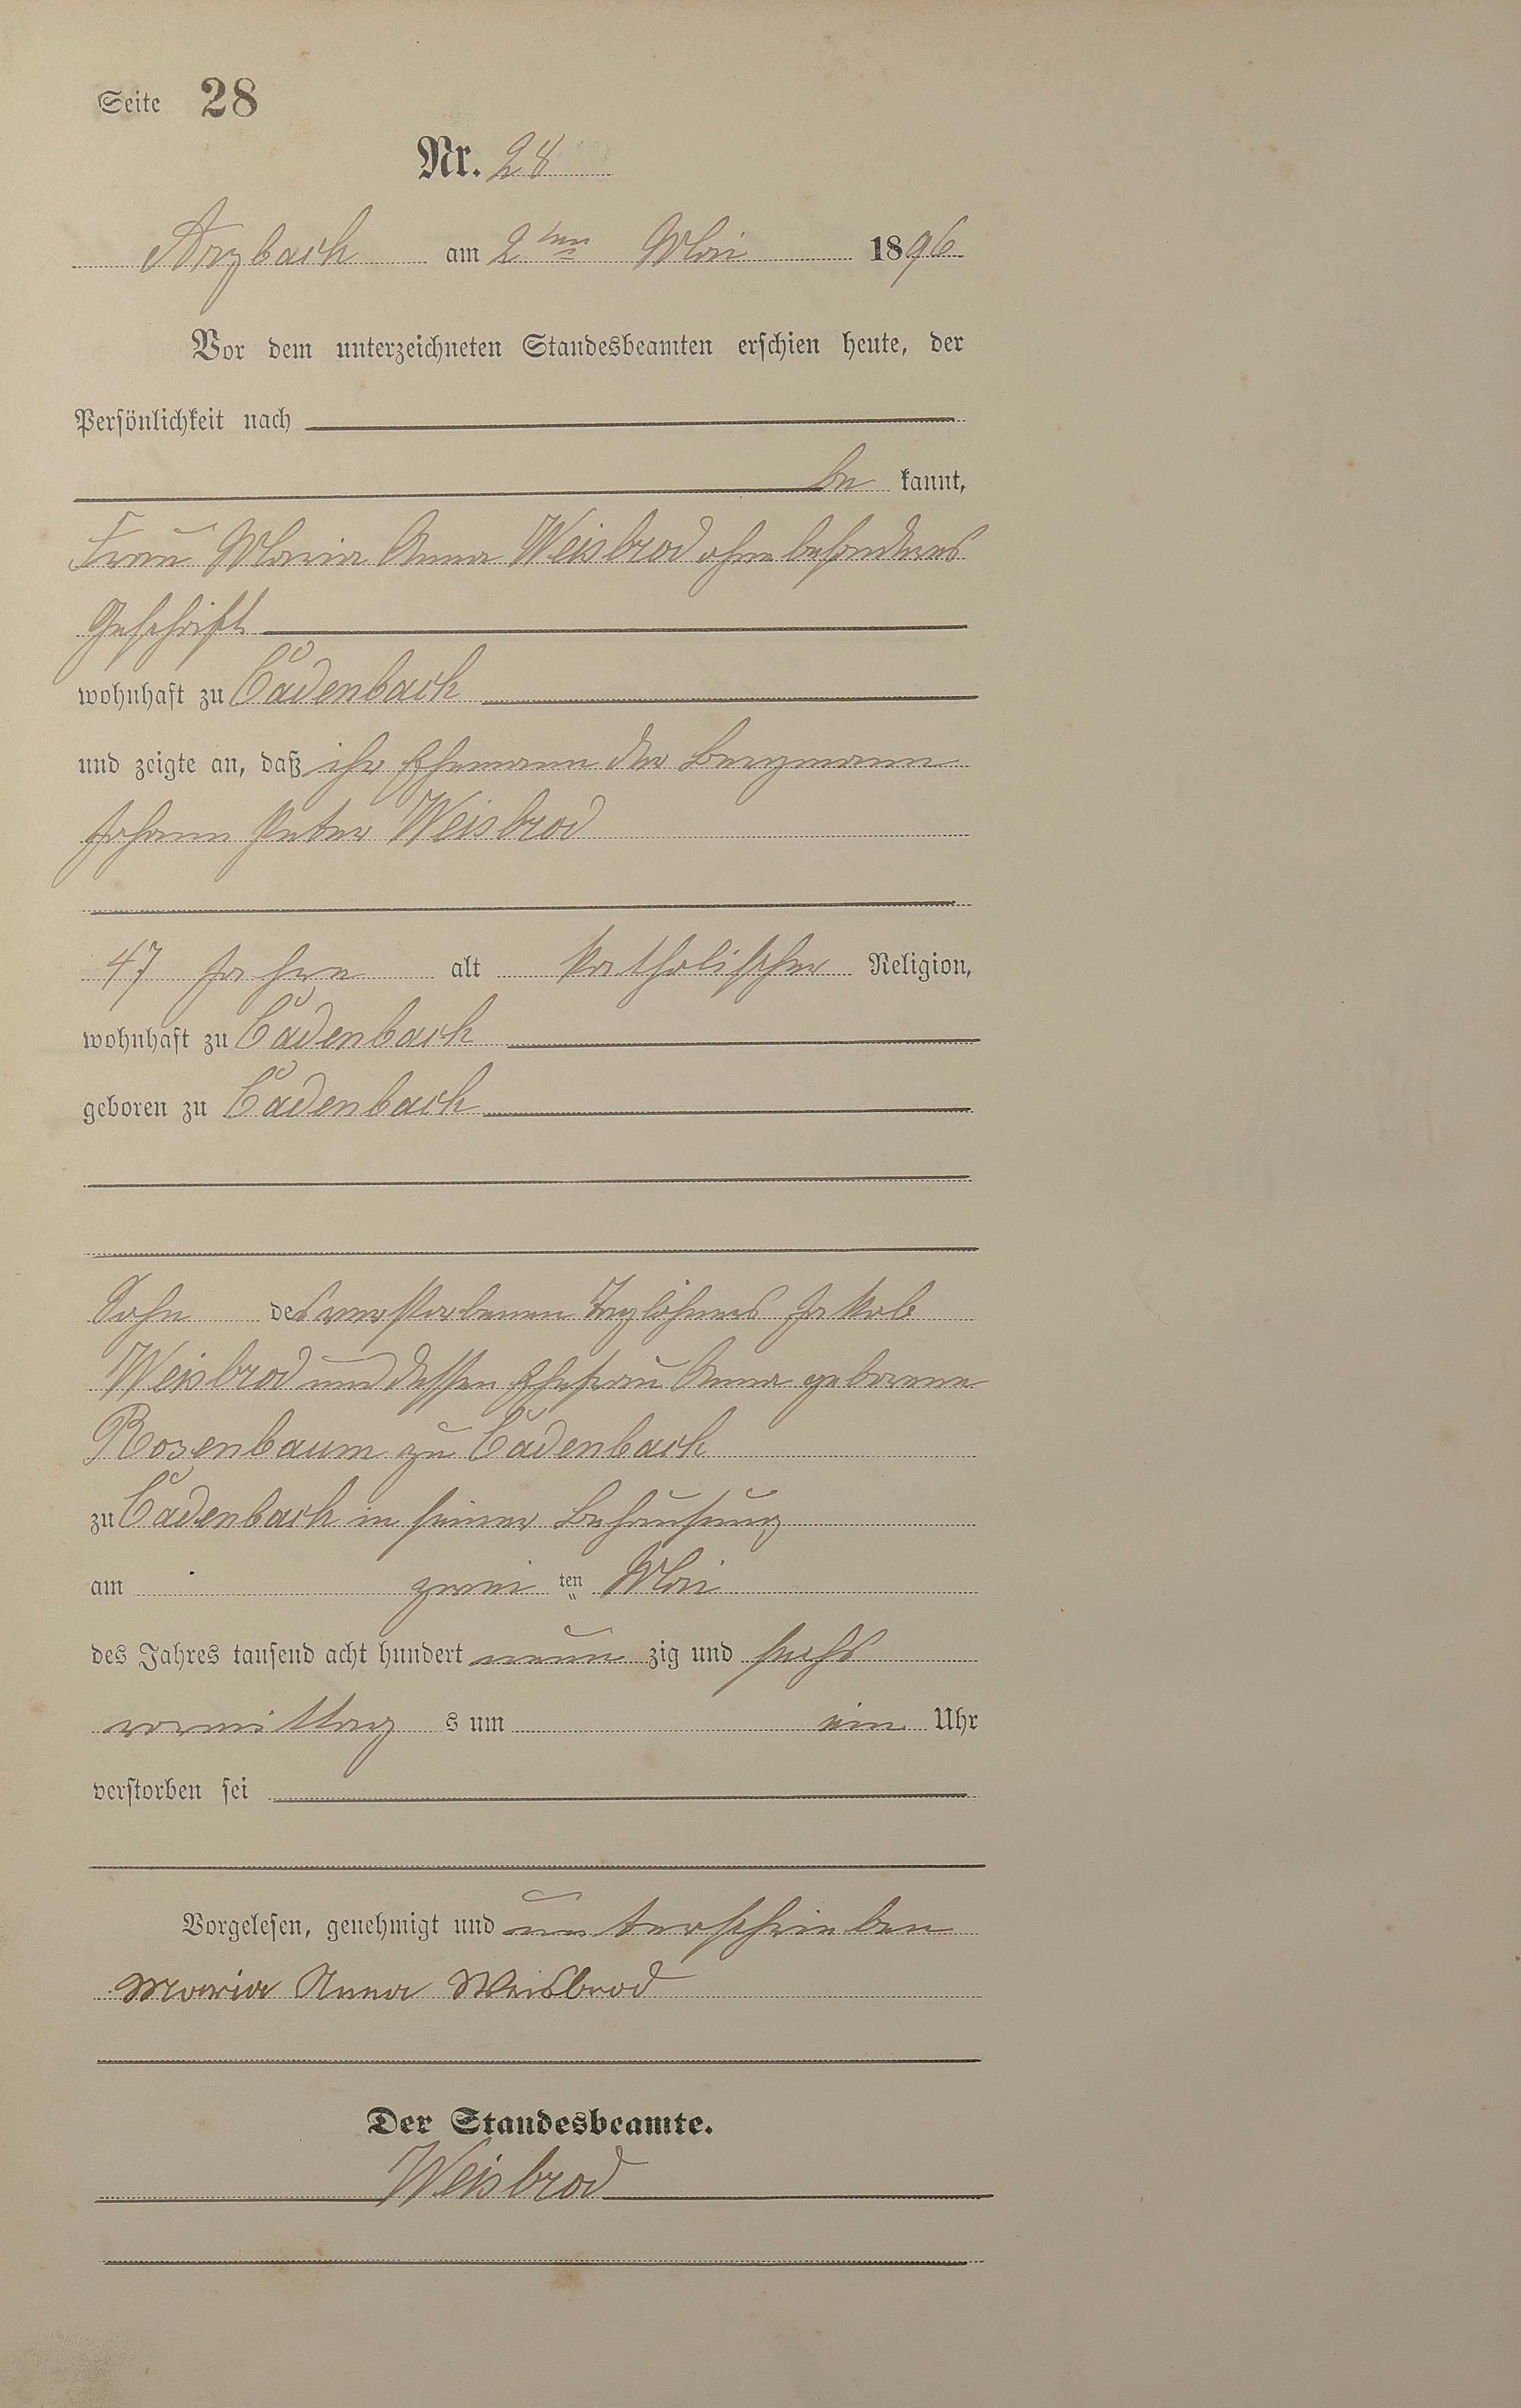 Seite 28
Nr. 28
Arzbach am 2ten Mai 1896
Vor dem unterzeichneten Standesbeamten erschien heute, der
Persönlichkeit nach
be kannt,
Frau Maria Anna Weisbrod ohne besonderes
Geschäft
wohnhaft zu Cadenbach
und zeigte an, daß ihr Ehemann der Bergmann
Johann Peter Weisbrod
47 Jahre alt katholischer Religion,
wohnhaft zu Cadenbach
geboren zu Cadenbach
Sohn des verstorbenen Taglöhners Jakob
Weisbrod und dessen Ehefrau Anna geborene
Rosenbaum zu Cadenbach
zu Cadenbach in seiner Behausung
am zwei ten Mai
des Jahres tausend acht hundert neun zig und sechs
vormittag s um ein Uhr
verstorben sei
Vorgelesen, genehmigt und unterschrieben
Maria Anna Weisbrod
Der Standesbeamte.
Weisbrod